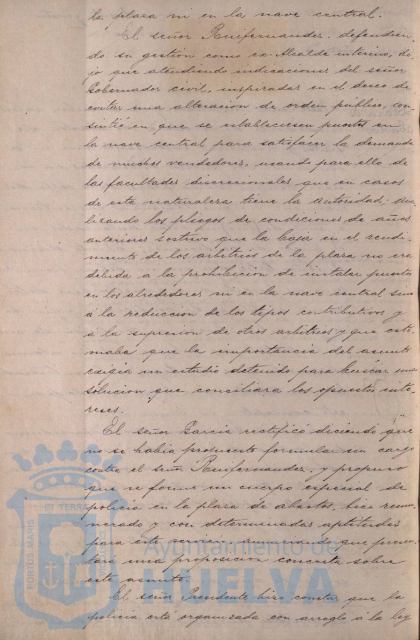 la plaza ni en la nave central.
El señor Ramifernandez, defendien-
do su gestión como ex-Alcalde interino, di-
jo que atendiendo indicaciones del señor
Gobernador civil, inspiradas en el deseo de
evitar una alteracion de orden público, con-
sintió en que se establecieran puestos en
la nave central para satisfacer la demanda
de muchos vendedores, usando para ello de
las facultades discrecionales que en casos
de esta naturaleza tiene la autoridad;
los pliegos de condiciones de años
anteriores sostuvo que la baja en el rendi-
miento de los arbitrios de la plaza no era
debida a la prohibicion de instalar puestos
en los alrededores ni en la nave central sino
á la reduccion de los tipos contributivos y
á la supresion de otros arbitrios y que esti-
maba que la importancia del asunto
exigia un estudio detenido para buscar una
solucion que conciliara los opuestos inte-
reses.
El señor Garcia rectificó diciendo que
no se habia propuesto formular un cargo
contra el señor Ramifernandez, y propuso
que se forme un cuerpo especial de
policia en la plaza de abastos, bien remu-
nerado y con determinadas aptitudes
para este servicio, anunciando que presen-
tara una proposicion concreta sobre
este asunto.
El señor Presidente hizo constar que la
policia está organizada con arreglo á la ley
Ayuntamiento de
HUELVA
PORTUS MARIS
ET TERRAE